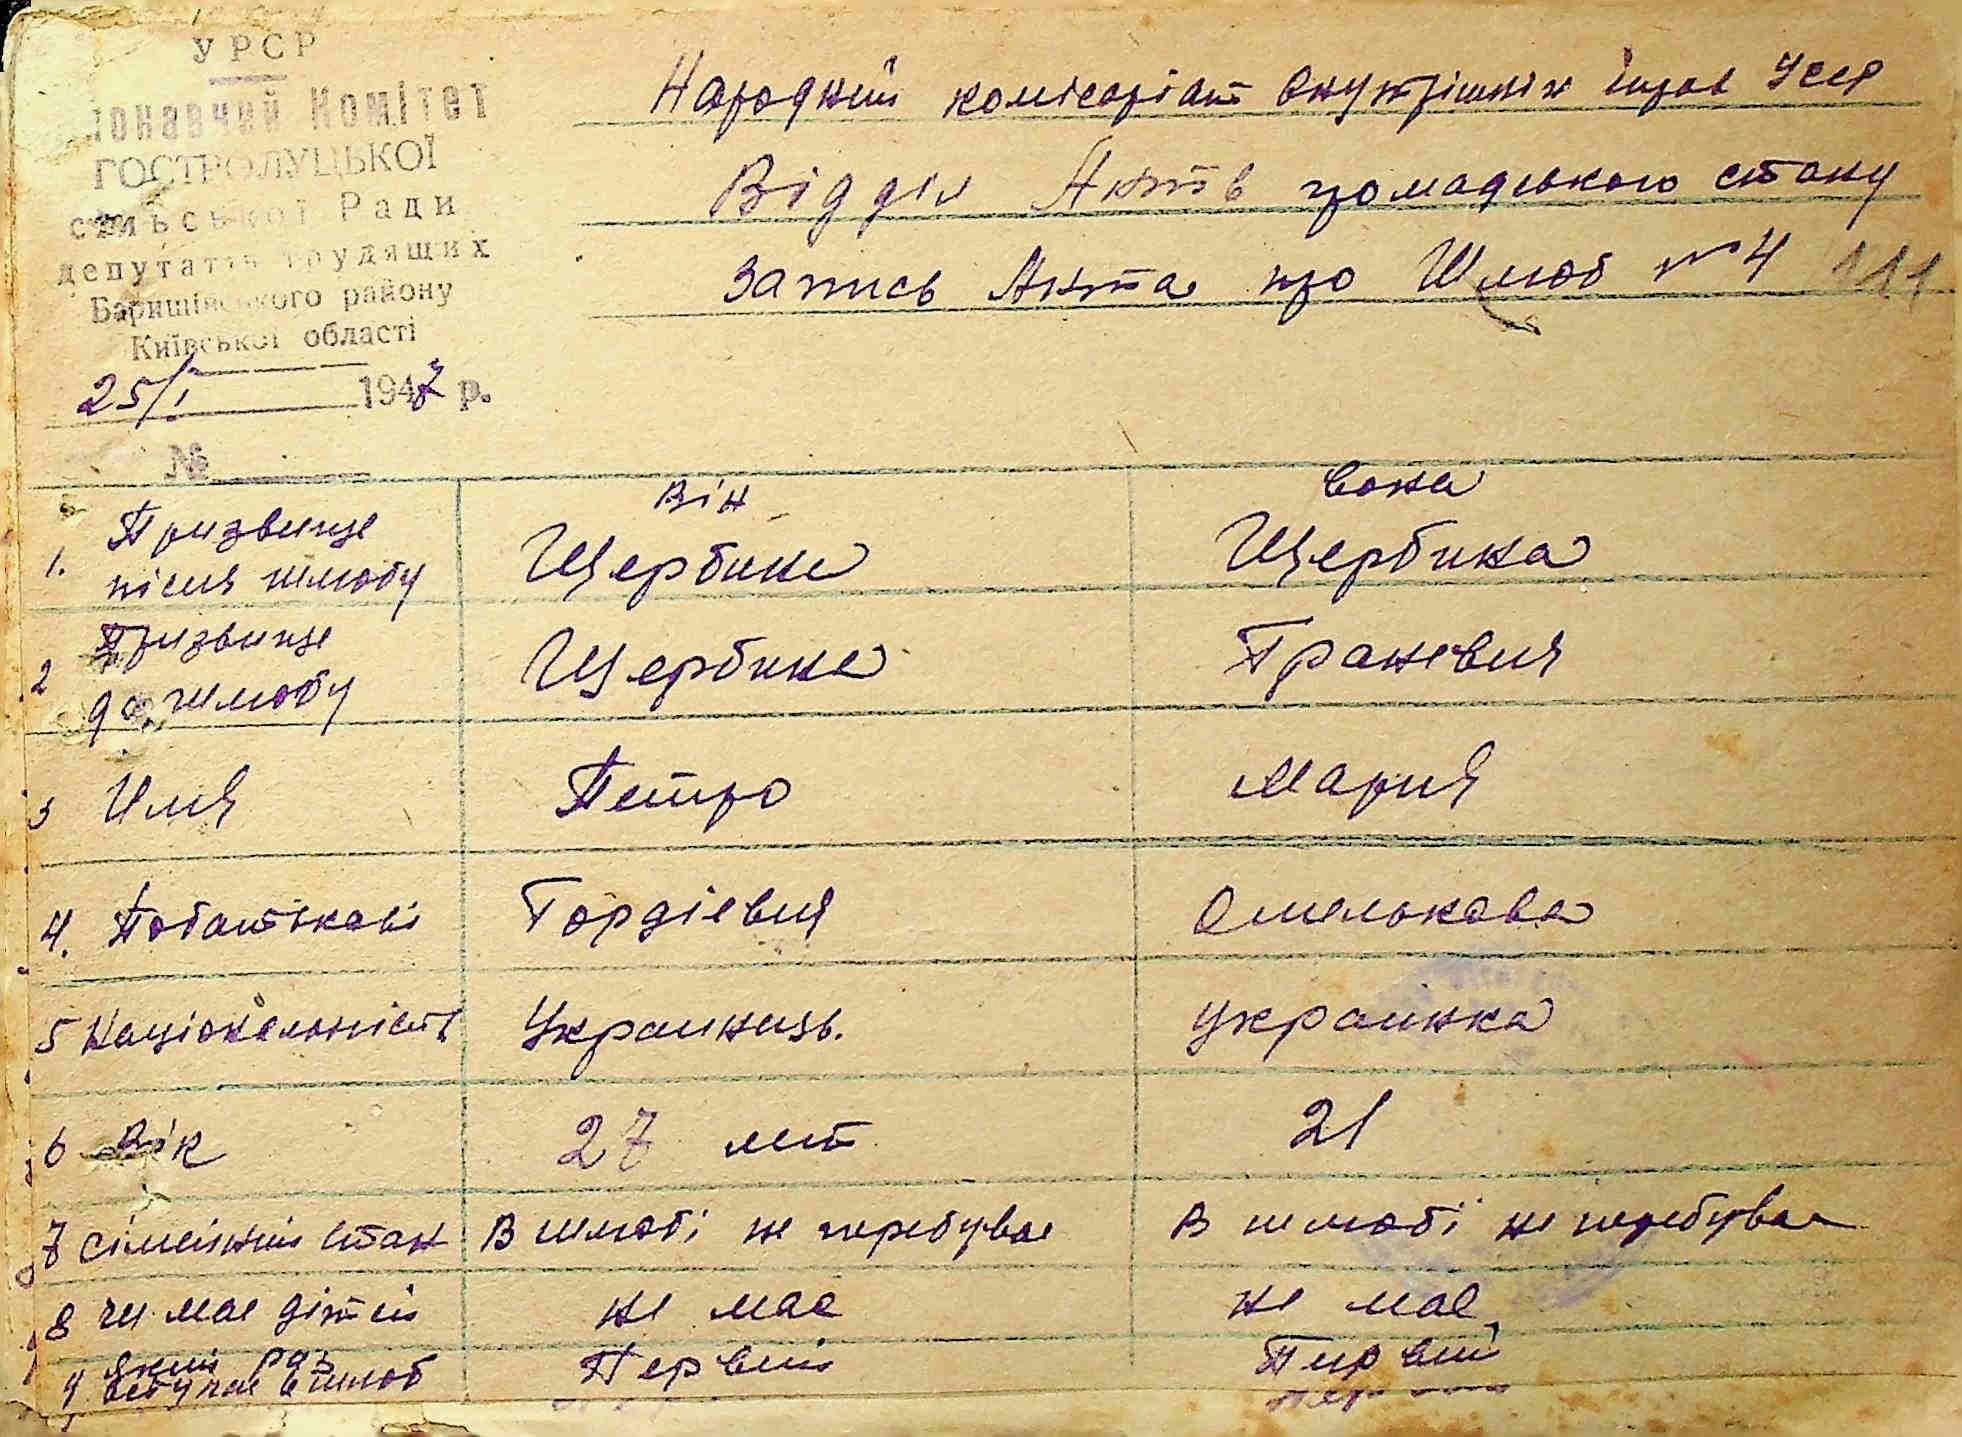 УРСР
Комітет
ГОСТРОЛУЦЬКОЇ
сільської Ради
депутатів трудящих
Баришівського району
Київської області
25/I 1947 р.
№
Народний комісаріат внутрішніх справ Усср
Відділ Актів громадського стану
Запись Акта про Шлюб № 4 111
Він Вона
1. Призвище після шлюбу Щербина Щербина
2 Призвище до шлюбу Щербина
3 Имя Петро Мария
4. Побатькові Гордієвич Омельковна
5 Національність Украинець. Украинка
6 Вік 27 лет 21
7 Сімейний стан В шлюбі не перебуває В шлюбі не перебуває
8 чи має дітей не має не має
9 який раз вступає в шлюб Первий Первий